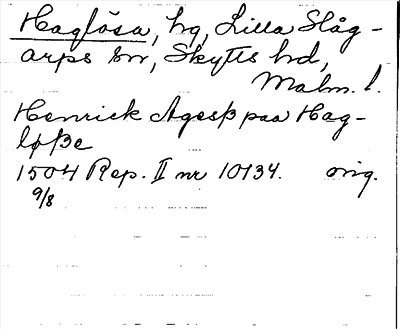 Haglösa, hg, Lilla Slåg-
arps sn, Skytts hd,
Malm. l.
Henrick Agesß paa Hag-
løße
1504 Rep. II nr 10134. orig.
9/8